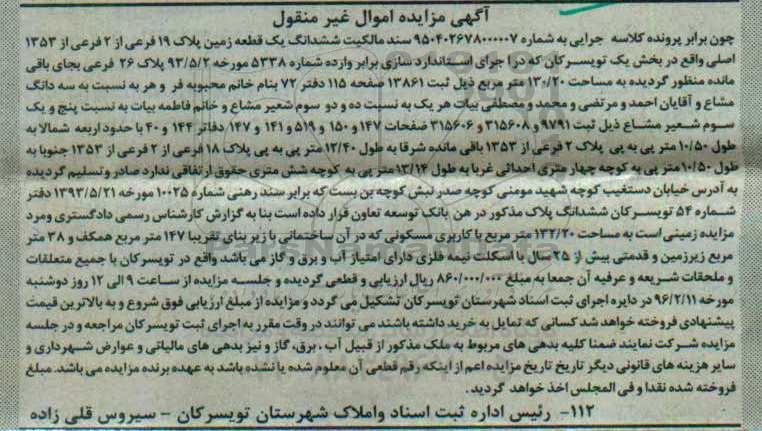 آگهی مزایده اموال غیر منقول
چون برابر پرونده کلاسه جرایی به شماره ۹۵۰۴۰۲۶۷۸۰۰۰۰۰۷ سند مالکیت ششدانگ یک قطعه زمین پلاک ۱۹ فرعی از ۲ فرعی از ۱۳۵۳
اصلی واقع در بخش یک تویسرکان که در اجرای استاندارد سازی برابر وارده شماره ۵۳۳۸ مورخه ۹۳/۵/۲ پلاک ۲۶ فرعی بجای باقی
مانده منظور گردیده به مساحت ۱۳۰/۲۰ متر مربع ذیل ثبت ۱۳۸۶۱ صفحه ۱۱۵ دفتر ۷۲ بنام خانم محبوبه فر و هر به نسبت به سه دانگ
مشاع و آقایان احمد و مرتضی و محمد و مصطفی بیات هر یک به نسبت ده و دو سوم شعیر مشاع و خانم فاطمه بیات به نسبت پنج و یک
سوم شعیر مشاع ذیل ثبت ۹۷۹۱ و ۳۱۵۶۰۸ و ۳۱۵۶۰۶ صفحات ۱۴۷ و ۱۵۰ و ۵۱۹ و ۱۴۱ و ۱۴۷ دفاتر ۱۴۴ و ۴۰ با حدود اربعه شمالا به
طول ۱۰/۵۰ متر پی به پی پلاک ۲ فرعی از ۱۳۵۳ باقی مانده شرقا به طول ۱۲/۴۰ متر پی به پی پلاک ۱۸ فرعی از ۲ فرعی از ۱۳۵۳ جنوبا به
طول ۱۰/۵۰ متر پی به کوچه چهار متری احداثی غربا به طول ۱۳/۱۴ متر پی به کوچه شش متری حقوق ارتفاقی ندارد صادر و تسلیم گردیده
به آدرس خیابان دستغیب کوچه شهید مومنی کوچه صدر نبش کوچه بن بست که برابر سند رهنی شماره ۱۰۰۲۵ مورخه ۱۳۹۳/۵/۲۱ دفتر
شماره ۵۴ تویسرکان ششدانگ پلاک مذکور در هن بانک توسعه تعاون قرار داده است بنا به گزارش کارشناس رسمی دادگستری ومرد
مزایده زمینی است به مساحت ۱۳۲/۲۰ متر مربع با کاربری مسکونی که در آن ساختمانی با زیر بنای تقریبا ۱۴۷ متر مربع همکف و ۳۸ متر
مربع زیرزمین و قدمتی بیش از ۲۵ سال با اسکلت نیمه فلزی دارای امتیاز آب و برق و گاز می باشد واقع در تویسرکان با جمیع متعلقات
و ملحقات شریعه و عرفیه آن جمعا به مبلغ ۸۶۰/۰۰۰/۰۰۰ ریال ارزیابی و قطعی گردیده و جلسه مزایده از ساعت ۹ الی ۱۲ روز دوشنبه
مورخه ۹۶/۲/۱۱ در دایره اجرای ثبت اسناد شهرستان تویسرکان تشکیل می گردد و مزایده از مبلغ ارزیابی فوق شروع و به بالاترین قیمت
پیشنهادی فروخته خواهد شد کسانی که تمایل به خرید داشته باشند می توانند در وقت مقرر به اجرای ثبت تویسرکان مراجعه و در جلسه
مزایده شرکت نمایند ضمنا کلیه بدهی های مربوط به ملک مذکور از قبیل آب ، برق، گاز و نیز بدهی های مالیاتی و عوارض شهرداری و
سایر هزینه های قانونی دیگر تاریخ تاریخ مزایده اعم از اینکه رقم قطعی آن معلوم شده یا نشده باشد به عهده برنده مزایده می باشد. مبلغ
فروخته شده نقدا و فی المجلس اخذ خواهد گردید .
۱۱۲- رئیس اداره ثبت اسناد واملاک شهرستان تویسرکان - سیروس قلی زاده